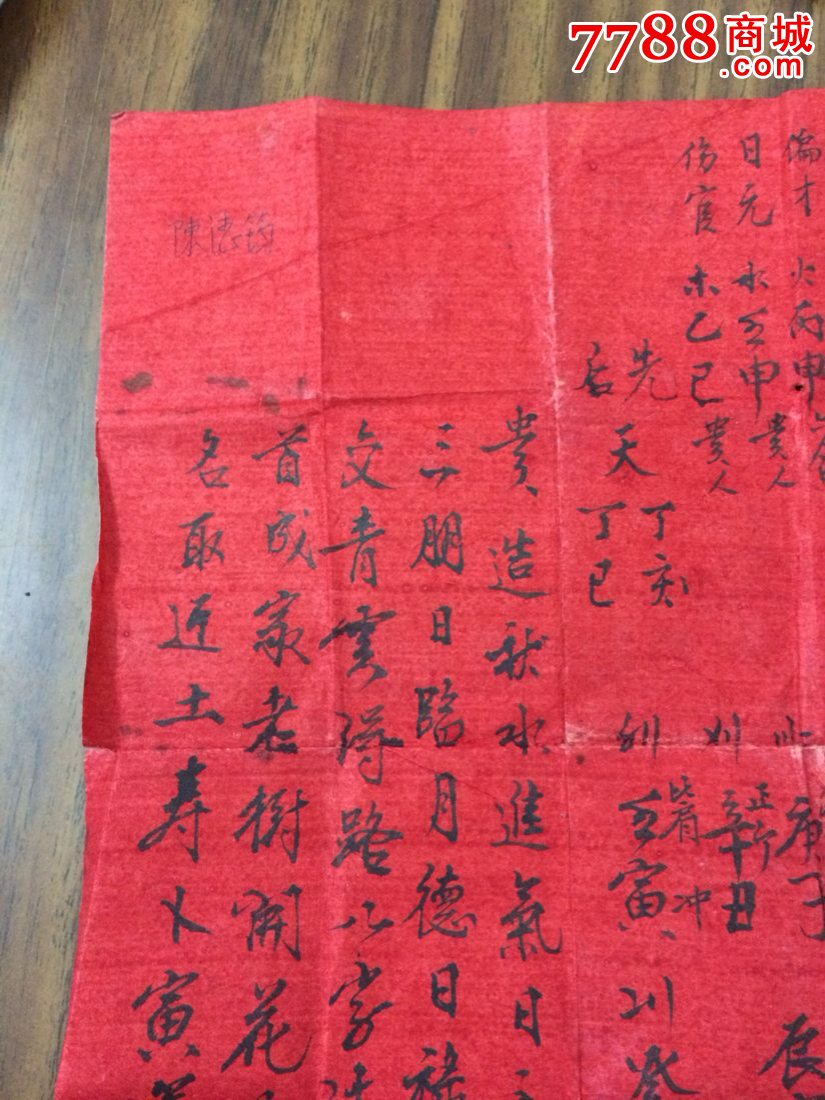 7788商城
.com
偏才 火丙申
日元 水壬申 貴人
伤官 木乙巳 貴人
先天 丁亥
后 丁巳
庚子
辛丑
壬寅
貴造秋水進氣日
三朋日臨月德日祿
交青雲得路八字
首成家老樹開花
名取近土寿卜寅
陳